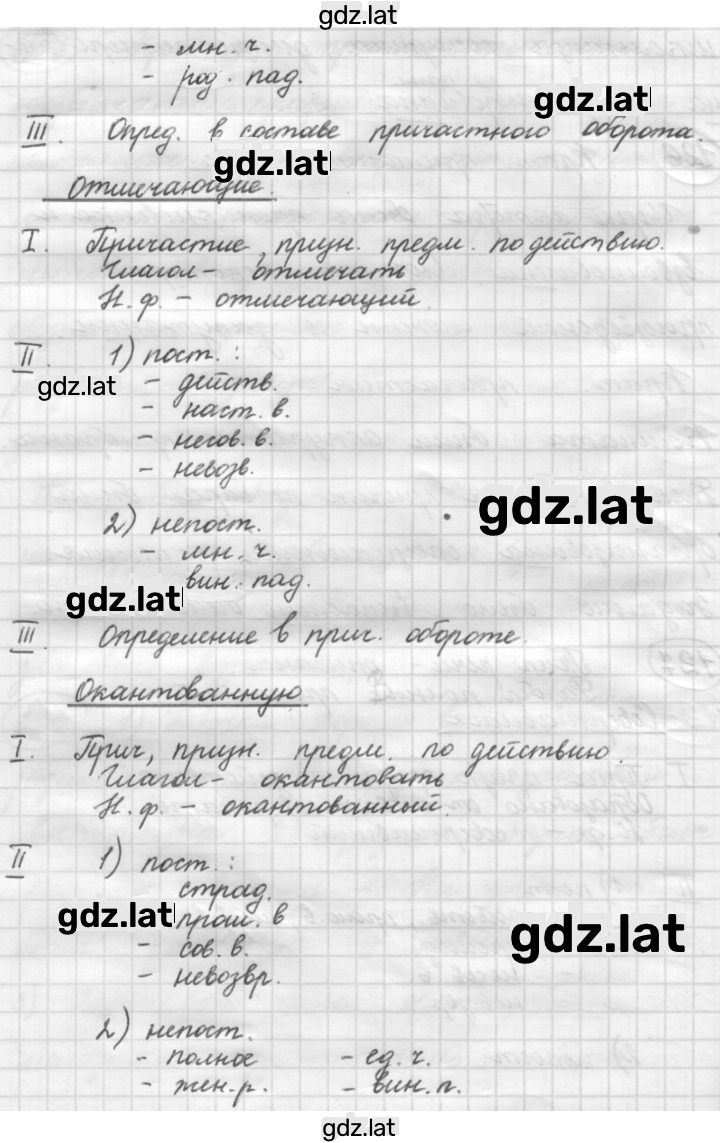 gdz.lat
- мн. ч.
- род. пад.
gdz.lat
III. Опред. в составе причастного оборота.
gdz.lat
Отмечающие.
I. Причастие, призн. предм. по действию.
Глагол - отмечать
Н. ф. - отмечающий.
II. 1) пост. :
gdz.lat
- действ.
- наст. в.
- несов. в.
- невозв.
gdz.lat
2) непост.
- мн. ч.
вин. пад.
gdz.lat
III. Определение в прич. обороте.
Окантованную
I. Прич, призн. предм. по действию.
Глагол - окантовать
Н. ф. - окантованный.
II 1) пост. :
страд.
gdz.lat
прош. в
gdz.lat
- сов. в.
- невозвр.
2) непост.
- полное - ед. ч.
- жен. р. - вин. п.
gdz.lat